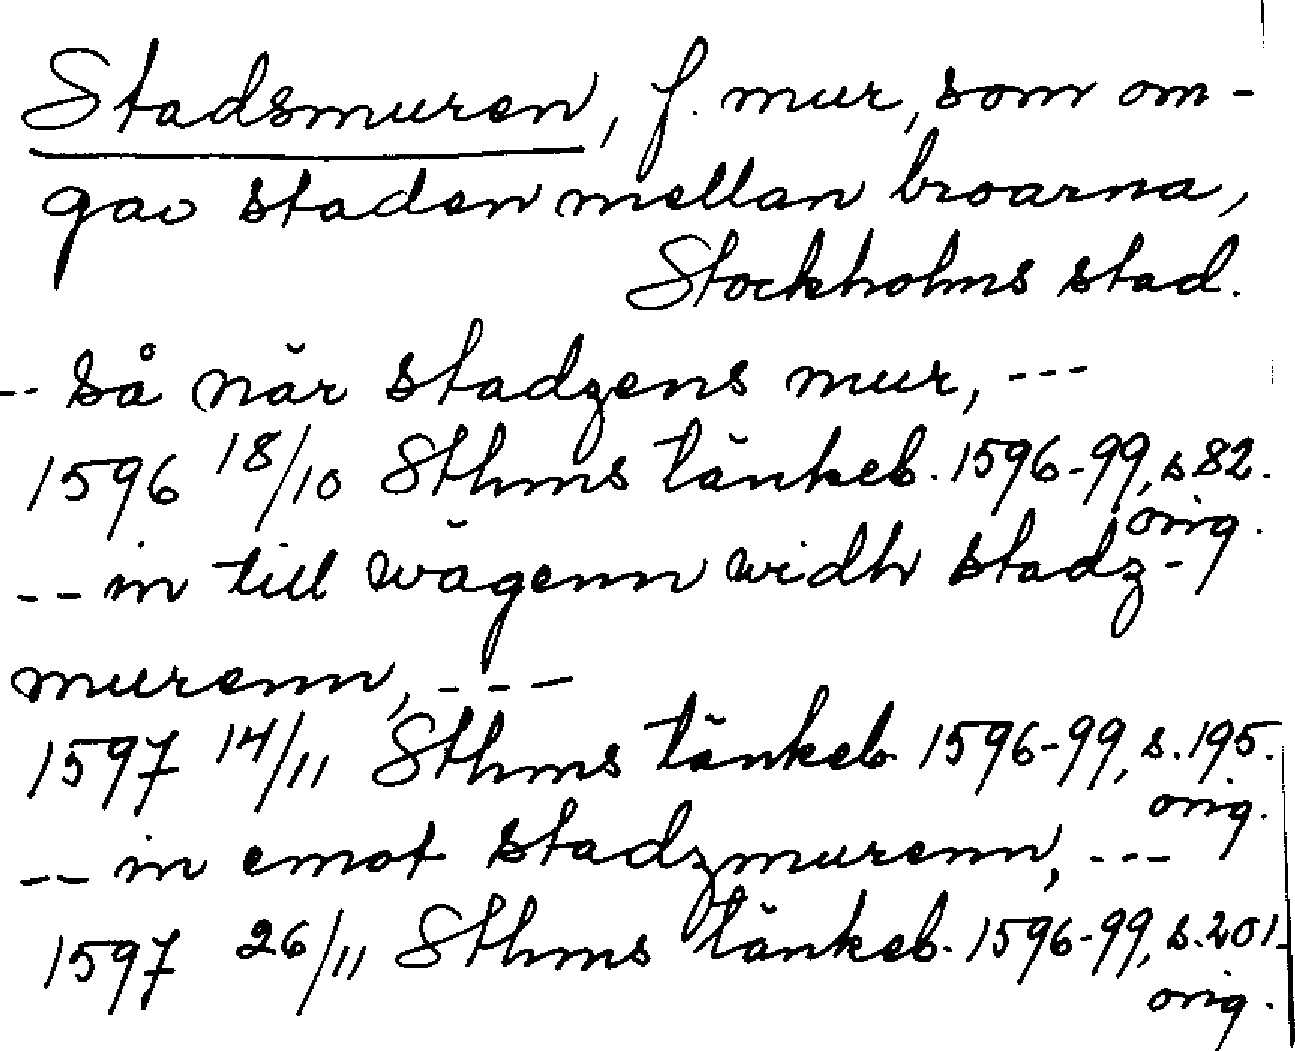 Stadsmuren, f. mur, som om-
gav staden mellan broarna,
Stockholms stad.
-- så när stadzens mur, ---
1596 18/10 Sthms tänkeb. 1596-99, s. 82.
orig.
-- in till wägenn widh stadz-
murenn, ---
1597 14/11 Sthms tänkeb. 1596-99, s. 195.
orig.
-- in emot stadzmurenn, ---
1597 26/11 Sthms tänkeb. 1596-99, s. 201.
orig.